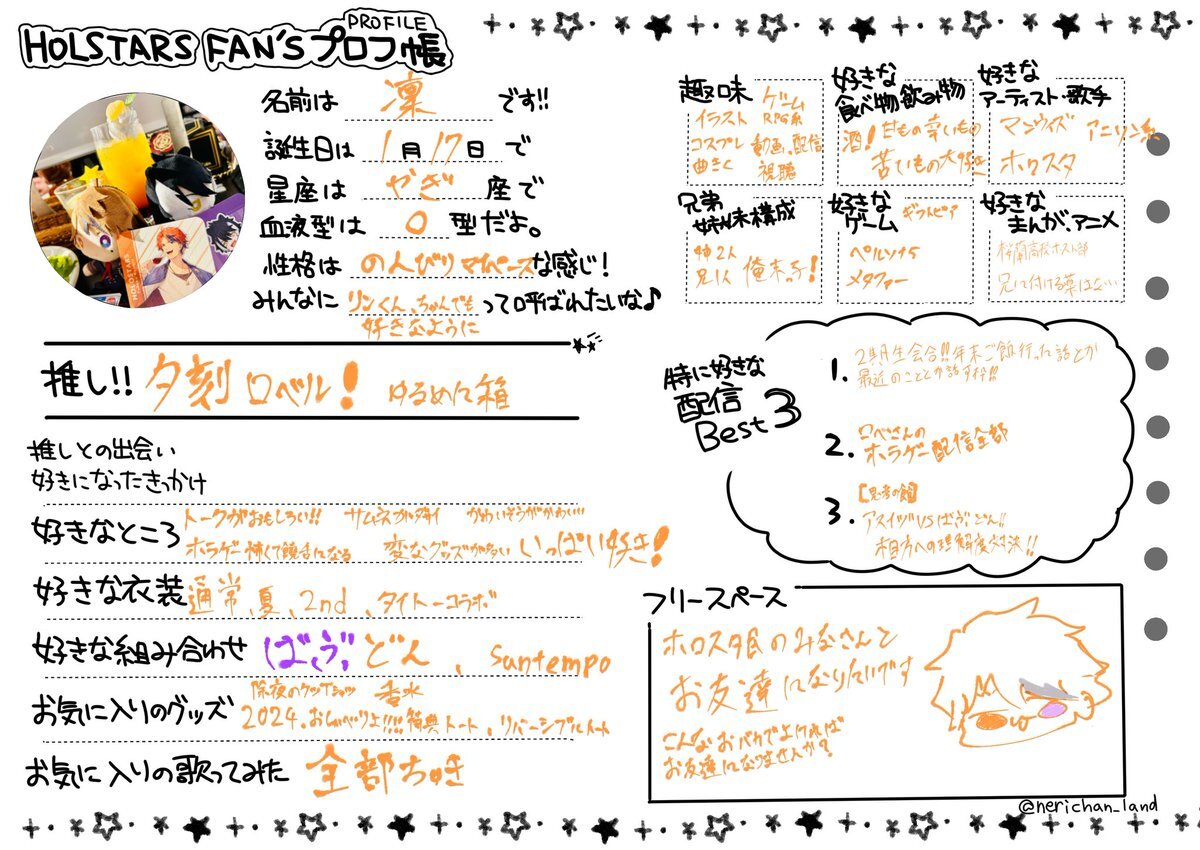 PROFILE
HOLSTARS FAN'Sプロフ帳
名前は 凛 です!!
誕生日は 1月17日で
星座は やぎ 座で
血液型は O 型だよ。
性格は のんびりマイペース な感じ!
みんなに リンくん、ちゃんでも って呼ばれたいな♪
好きなように
推し!! 夕刻ロベル! ゆるめに箱
推しとの出会い
好きになったきっかけ
好きなところ トークがおもしろい!! サムネがダサイ かわいそうがかわいい
ホラゲー怖くて饒舌になる 変なグッズが多い いっぱい好き!
好きな衣装 通常、夏、2nd、タイトーコラボ
好きな組み合わせ ばぶどん、suntempo
お気に入りのグッズ 除夜のケツTシャツ 香水
2024.おしゃべりよ!!!!特典トート、リバーシブルトート
お気に入りの歌ってみた 全部ちゅき
趣味
ゲーム
RPG系
イラスト
コスプレ 動画、配信
曲きく 視聴
好きな
食べ物飲み物
酒! 甘もの辛いもの
苦いもの大好き
好きな
アーティスト・歌手
マンウィズ アニソン系
ホロスタ
兄弟
姉妹構成
姉2人
兄1人 俺末っ子!
好きな
ゲーム ギフトピア
ペルソナ5
メタファー
好きな
まんが、アニメ
桜蘭高校ホスト部
兄に付ける薬はない
特に好きな
配信
Best 3
1. 2期生会合!!年末ご飯行った話とか
最近のこととか話す枠!!
2. ロベさんの
ホラゲー配信全部
3. 【思考の館】
アステヅVSばぶどん!!
相方への理解度対決!!
フリースペース
ホロスタ民のみなさんと
お友達になりたいです
こんなおバカでよければ
お友達になりませんか?
@nerichan_land